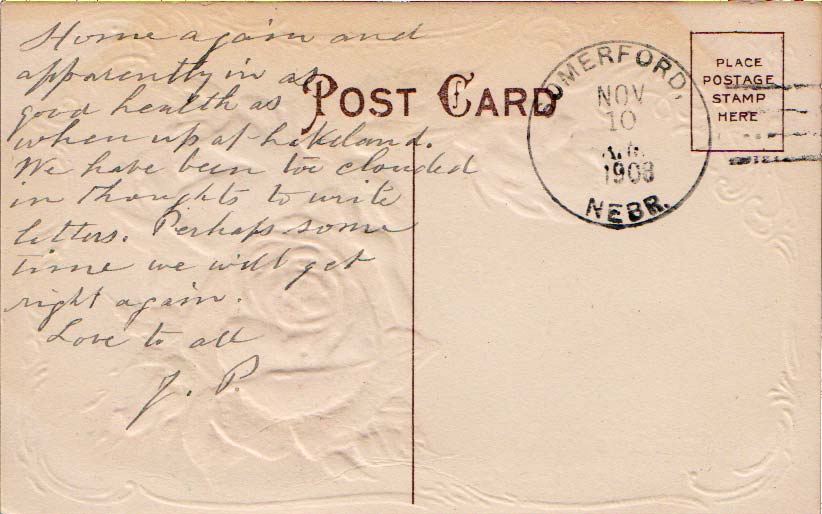 Home again and
apparently in as
good health as
when up at Lakeland.
We have been too clouded
in thoughts to write
letters. Perhaps some
time we will get
right again.
Love to all
J. P.
POST CARD
SOMERFORD,
NOV
10
A.M.
1908
NEBR.
PLACE
POSTAGE
STAMP
HERE